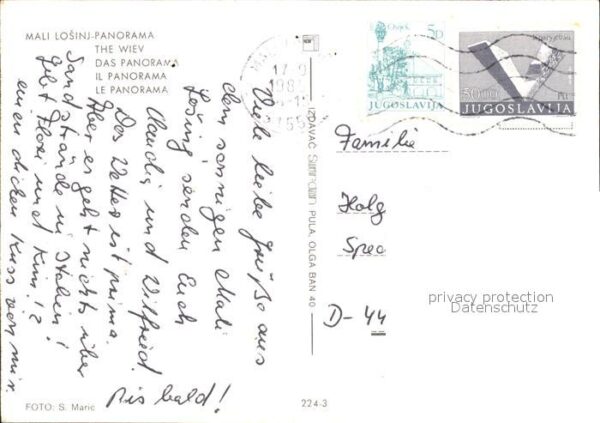 MALI LOŠINJ-PANORAMA
THE WIEV
DAS PANORAMA
IL PANORAMA
LE PANORAMA
Viele liebe Grüße aus
dem sonnigen Mali
Lošinj senden Euch
Claudia und Wilfried.
Das Wetter ist prima.
Aber es geht nichts über
Sandstrände in Italien!
Gebt Flori und Kim! 2
einen dicken Kuss von mir.
Bis bald!
FOTO: S. Marić
IZDAVAČ
PULA, OLGA BAN 40
224-3
17
Osijek
5D
JUGOSLAVIJA
50.00
JUGOSLAVIJA
Familie
Holg
Spec
D-44
privacy protection
Datenschutz